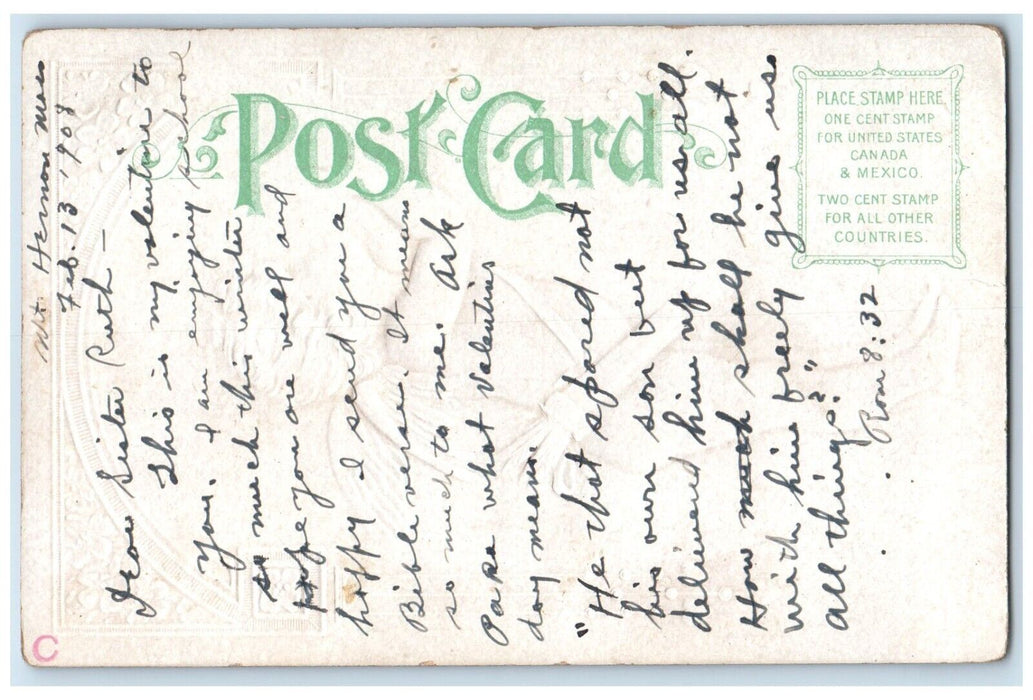 Post Card
PLACE STAMP HERE
ONE CENT STAMP
FOR UNITED STATES
CANADA
& MEXICO.
TWO CENT STAMP
FOR ALL OTHER
COUNTRIES.
Mt. Hermon Mass
Feb. 13, 1908
Dear Sister Ruth —
This is my valentine to
you. I am enjoying school
so much this winter
hope you are well and
happy I send you a
Bible verse. It means
so much to me. Ask
Papa what Valentines
day means.
"He that spared not
his own son but
delivered him up for us all.
How much shall he not
with him freely give us
all things?"
Rom 8:32
C